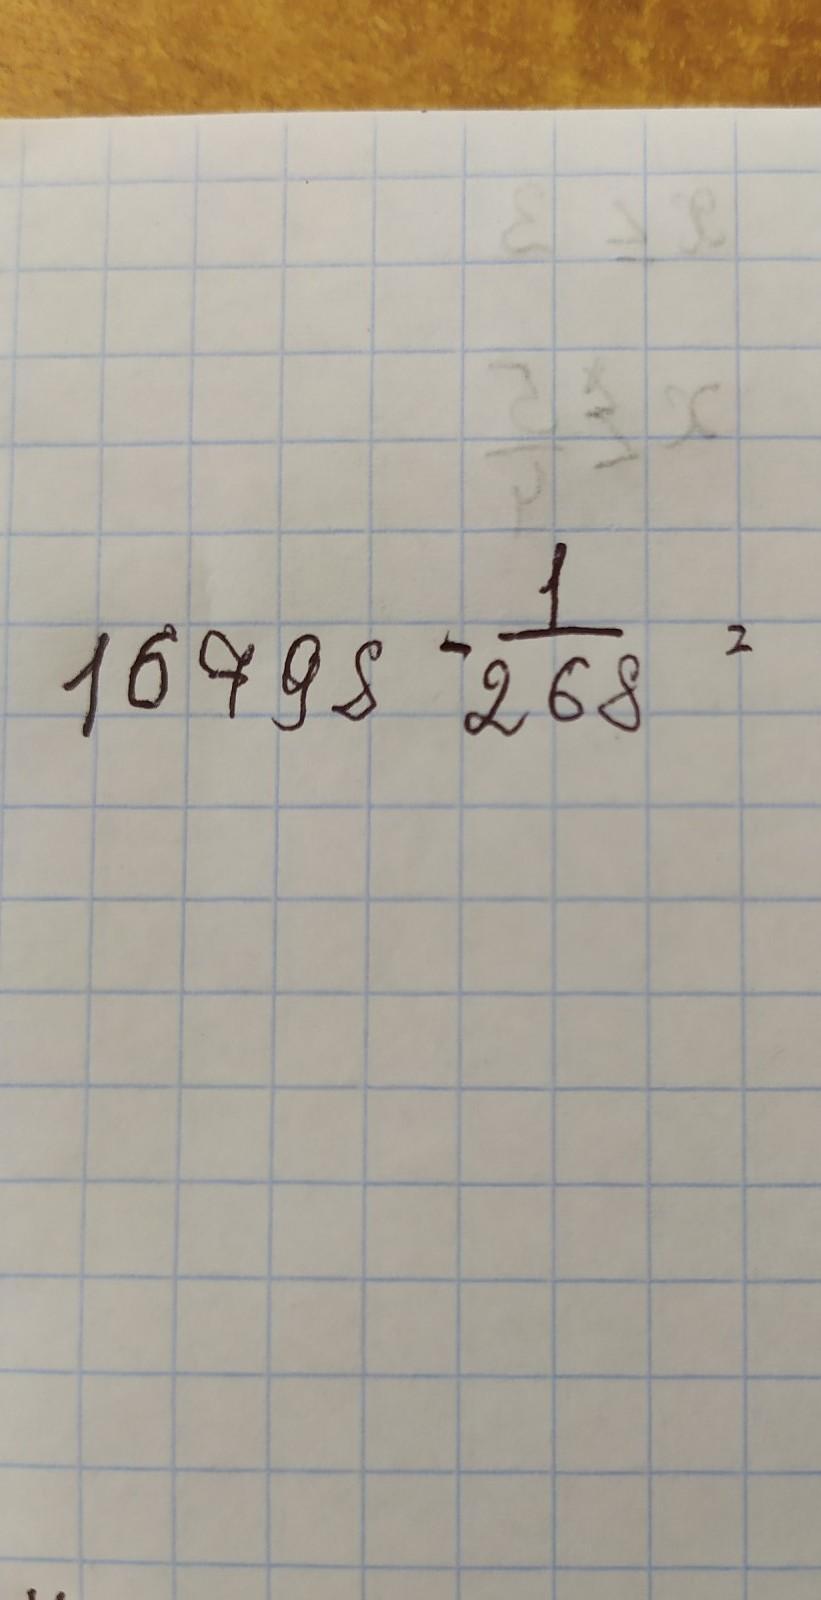 16798 - 1/268 =